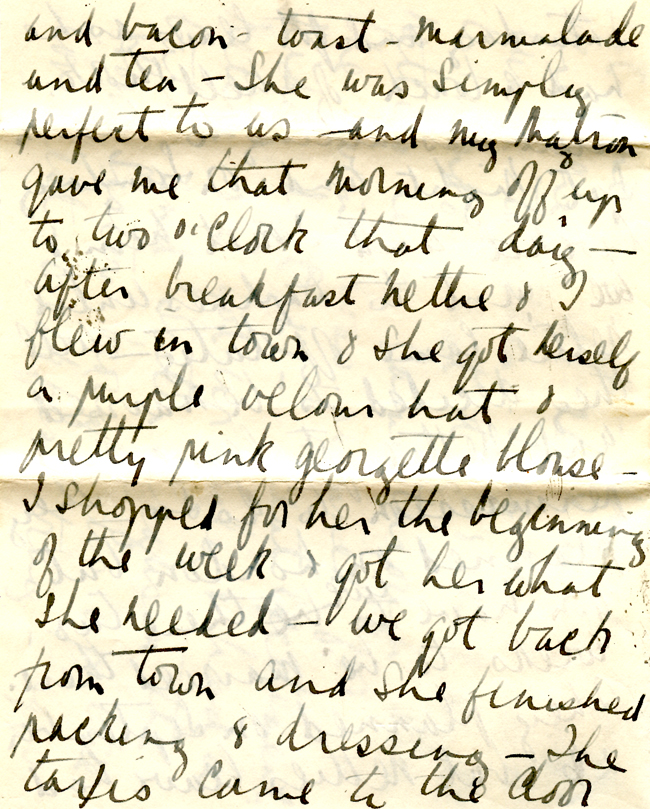 and bacon - toast - marmalade
and tea - She was simply
perfect to us - and my Matron
gave me that morning off up
to two o'clock that day -
After breakfast Nettie & I
flew in town & she got herself
a purple velour hat &
pretty pink georgette blouse -
I shopped for her the beginning
of the week & got her what
she needed - We got back
from town and she finished
packing & dressing - The
taxis came to the door